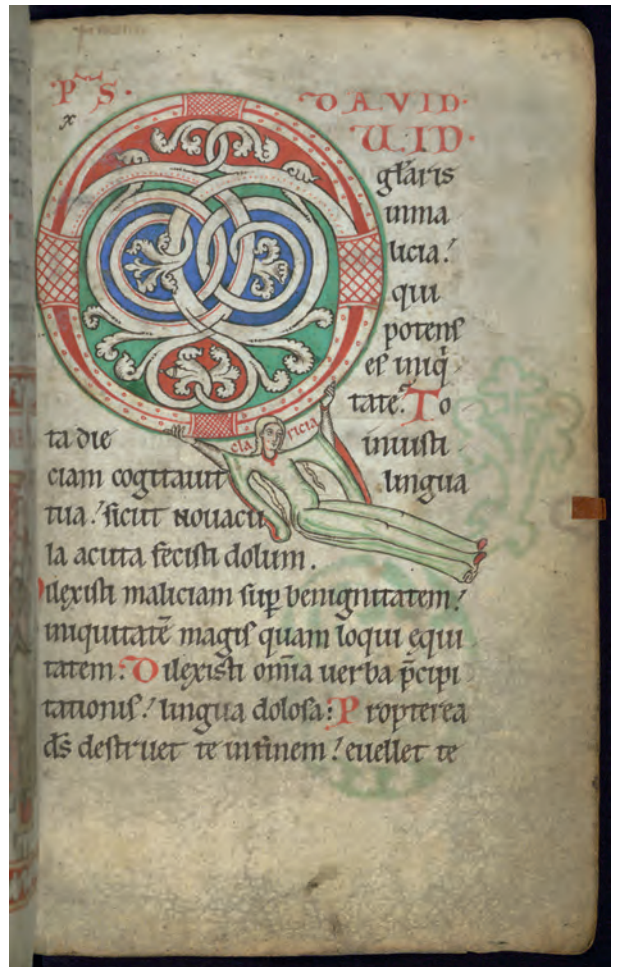 PS. DAVID.
x
U. ID.
głaris
inma
licia.
qui
potens
es iniq
tate. To
ta die iniusti
claricia
ciam cogitauit lingua
tua. sicut nouacu
la acuta fecisti dolum.
Dilexisti maliciam sup benignitatem.
iniquitatē magis quam loqui equi
tatem: Dilexisti om̄ia uerba p̄cipi
tationis. lingua dolosa: Propterea
d̄s destruet te infinem. euellet te